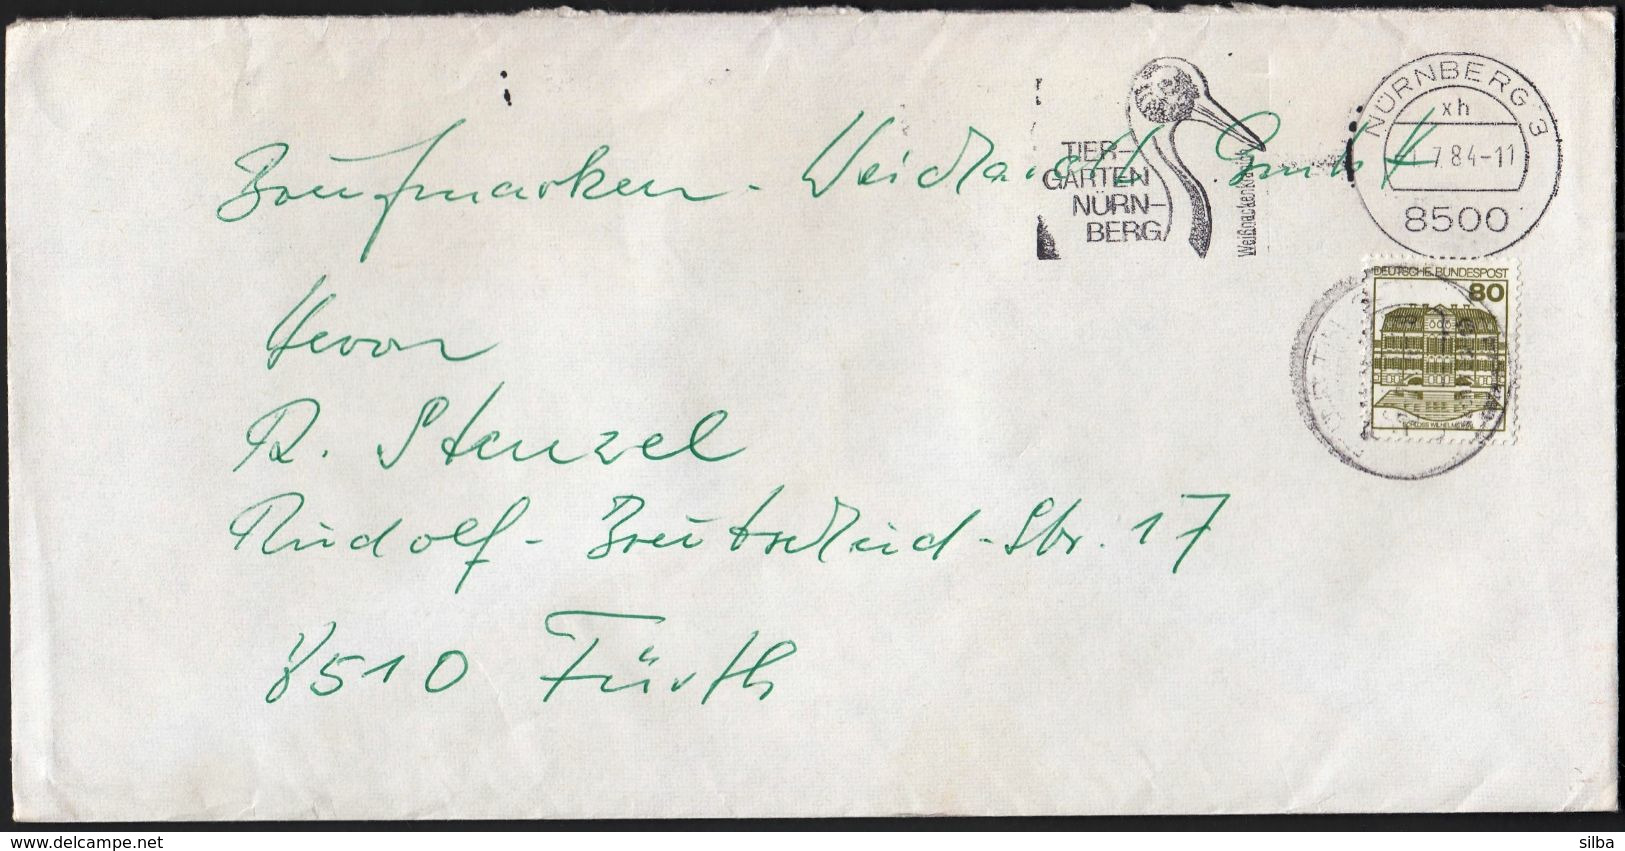 NÜRNBERG 3
xh
-1.7.84-11
8500
TIER-
GARTEN
NÜRN-
BERG
Weißnackenkranich
Briefmarken - Weidlaich GmbH
DEUTSCHE BUNDESPOST
80
SCHLOSS WILHELMSTHAL
Herrn
R. Stenzel
Rudolf-Breitscheid-Str. 17
8510 Fürth
www.delcampe.net
silba